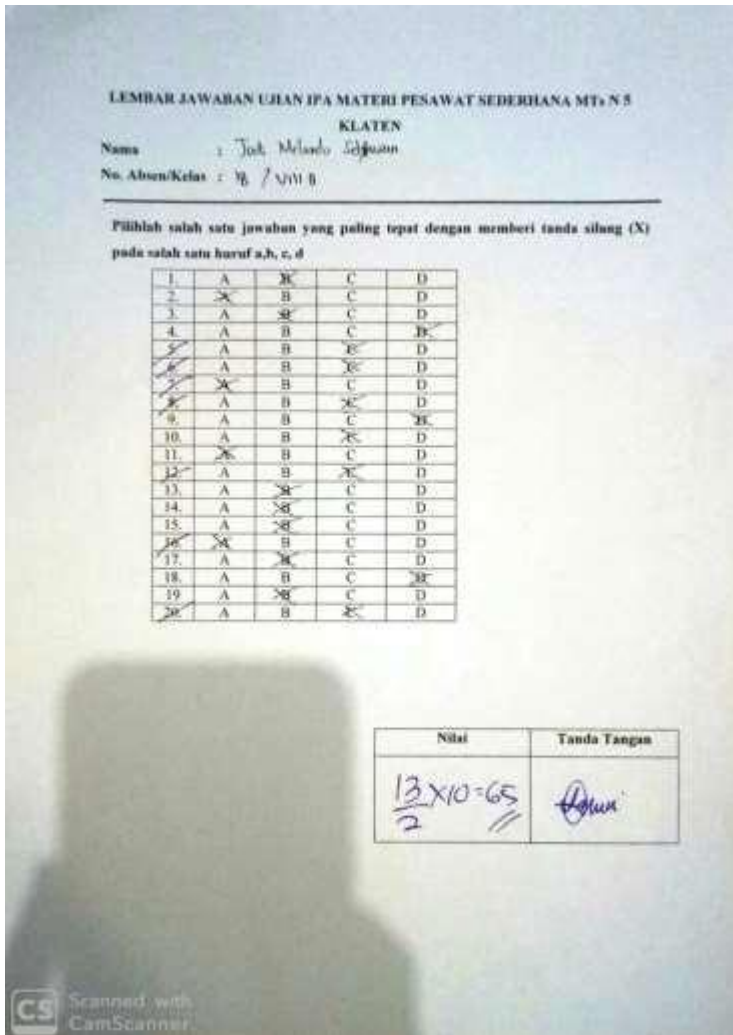 LEMBAR JAWABAN UJIAN IPA MATERI PESAWAT SEDERHANA MTs N 5
KLATEN
Nama :
No. Absen/Kelas : 18 / VIII B
Pilihlah salah satu jawaban yang paling tepat dengan memberi tanda silang (X)
pada salah satu huruf a,b, c, d
1. A B C D
2. A B C D
3. A B C D
4. A B C D
5. A B C D
6. A B C D
7. A B C D
8. A B C D
9. A B C D
10. A B C D
11. A B C D
12. A B C D
13. A B C D
14. A B C D
15. A B C D
16. A B C D
17. A B C D
18. A B C D
19 A B C D
20. A B C D
Nilai Tanda Tangan
13/2 X10=65
CS Scanned with
CamScanner